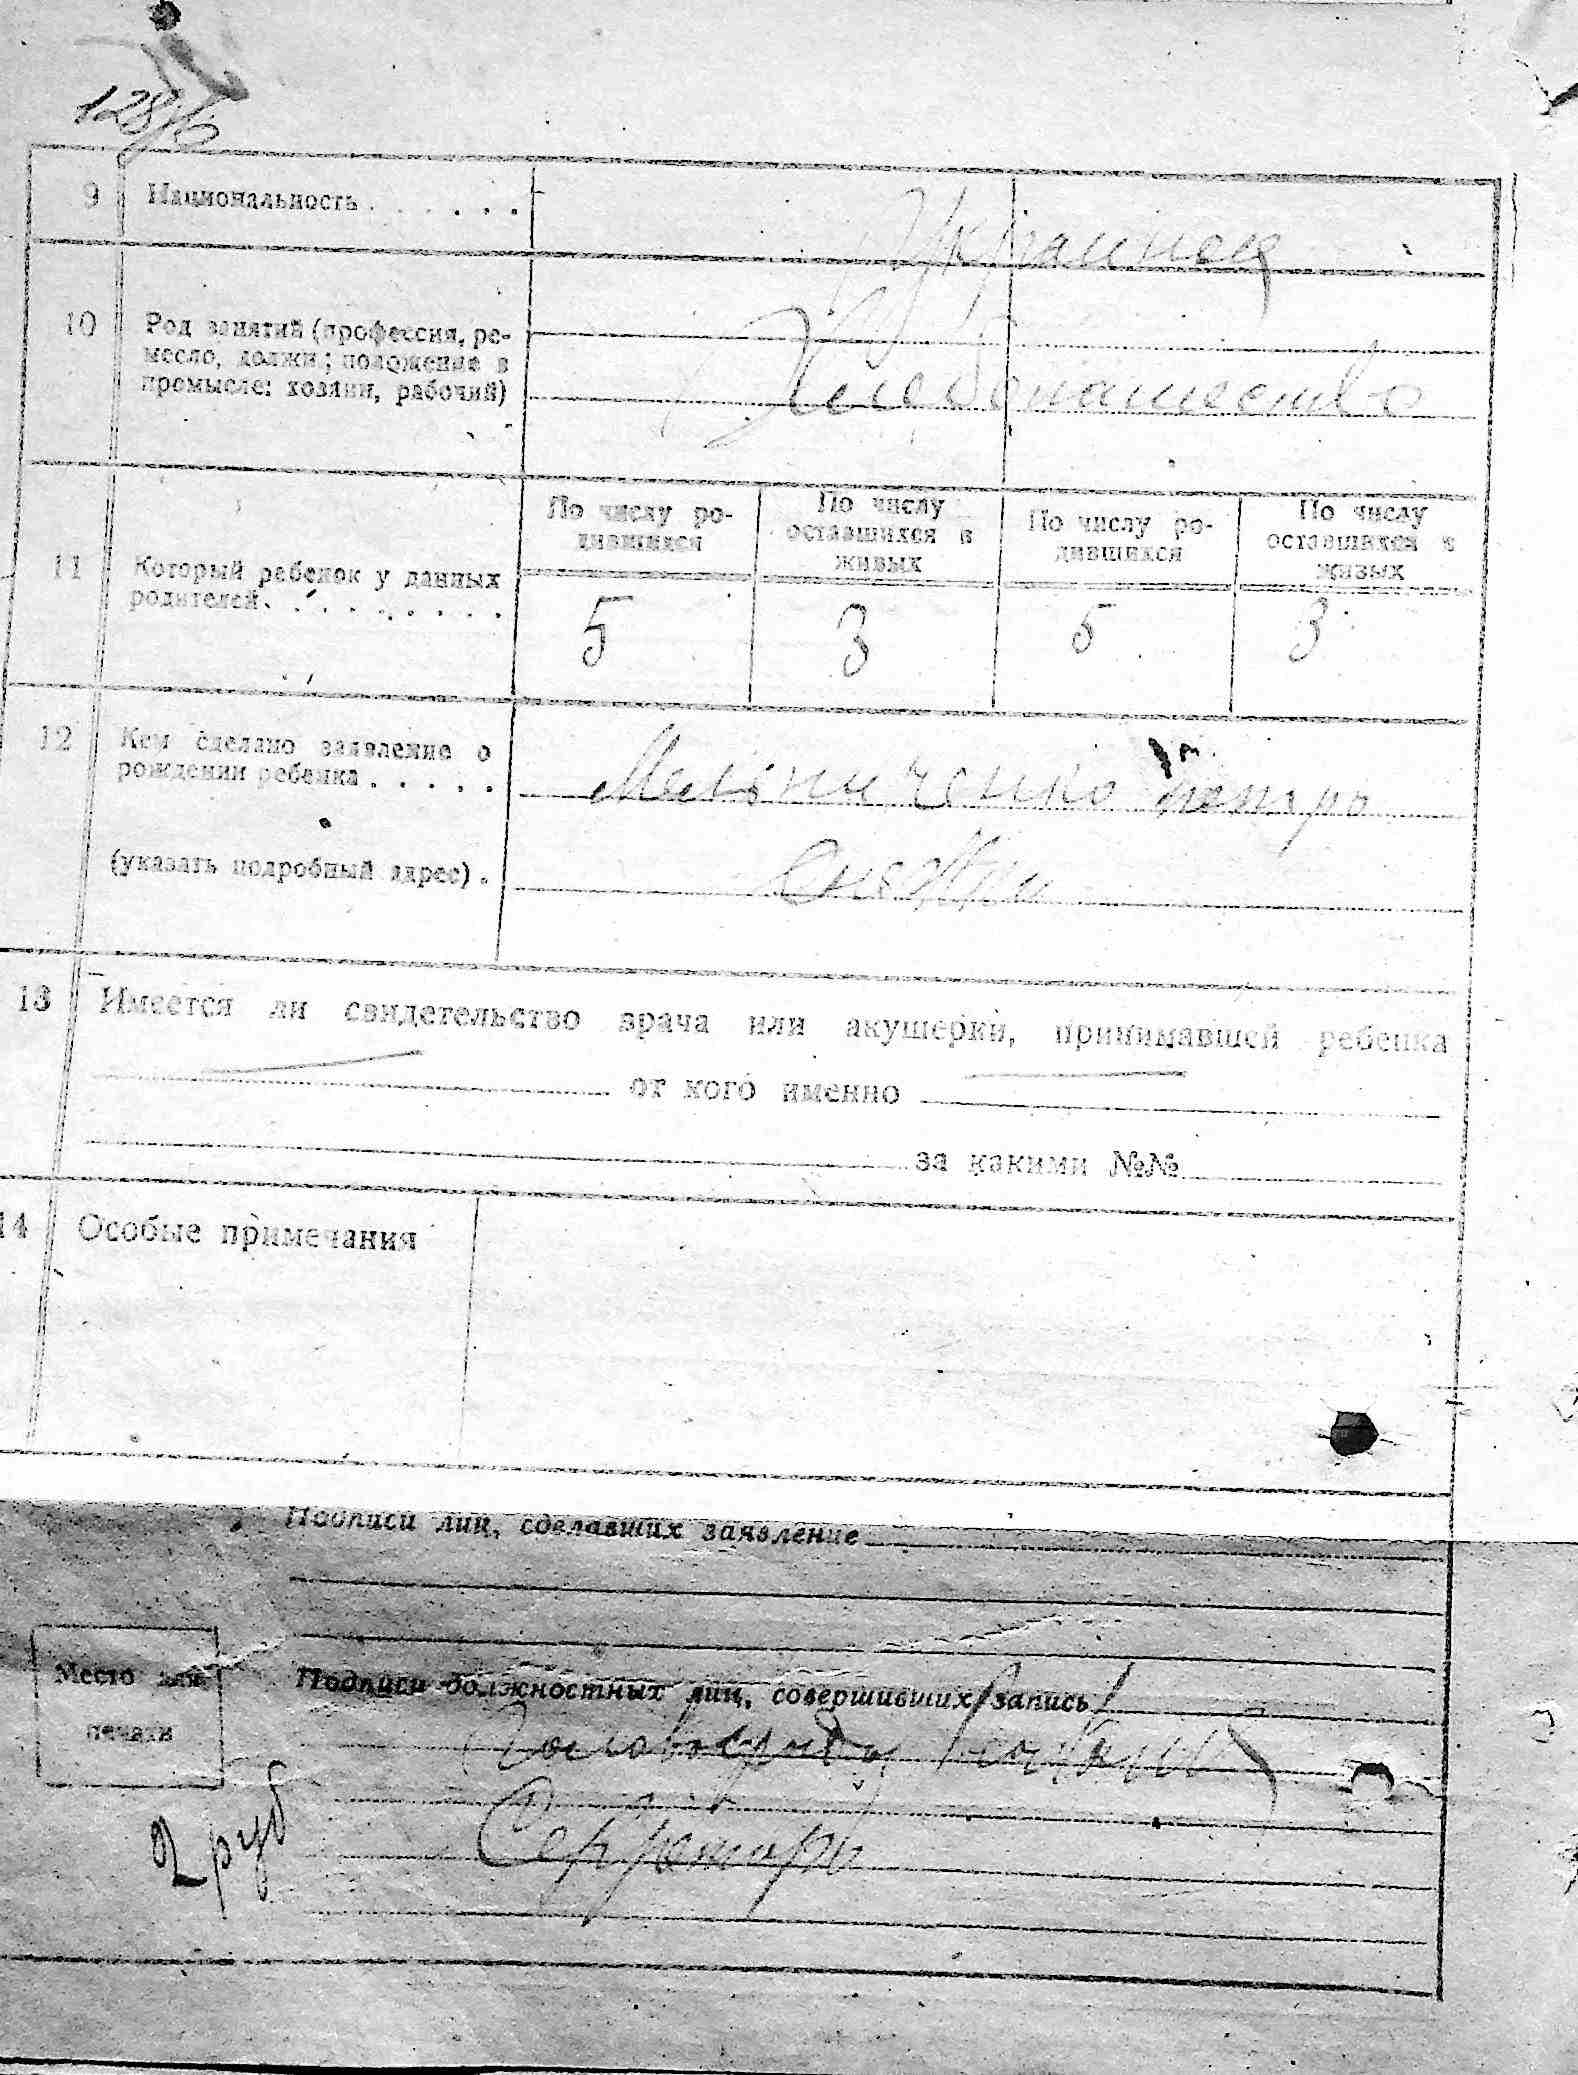 9 Национальность . . . . . .
Украинец
10 Род занятий (профессия, ре-
месло, должн; положение в
промысле: хозяин, рабочий)
Хлебопашество
По числу ро-
дившихся
По числу
оставшихся в
живых
По числу ро-
дившихся
По числу
оставшихся в
живых
11 Который ребенок у данных
родителей. . . . . . . . .
5 3 5 3
12 Кем сделано заявление о
рождении ребенка . . . . .
Мельниченко Петръ
(указать подробный адрес) .
13 Имеется ли свидетельство врача или акушерки, принимавшей ребенка
от кого именно
за какими №№
14 Особые примечания
Подписи лиц, сделавших заявление
Место для
печати
Подписи должностных лиц, совершивших запись
2 руб